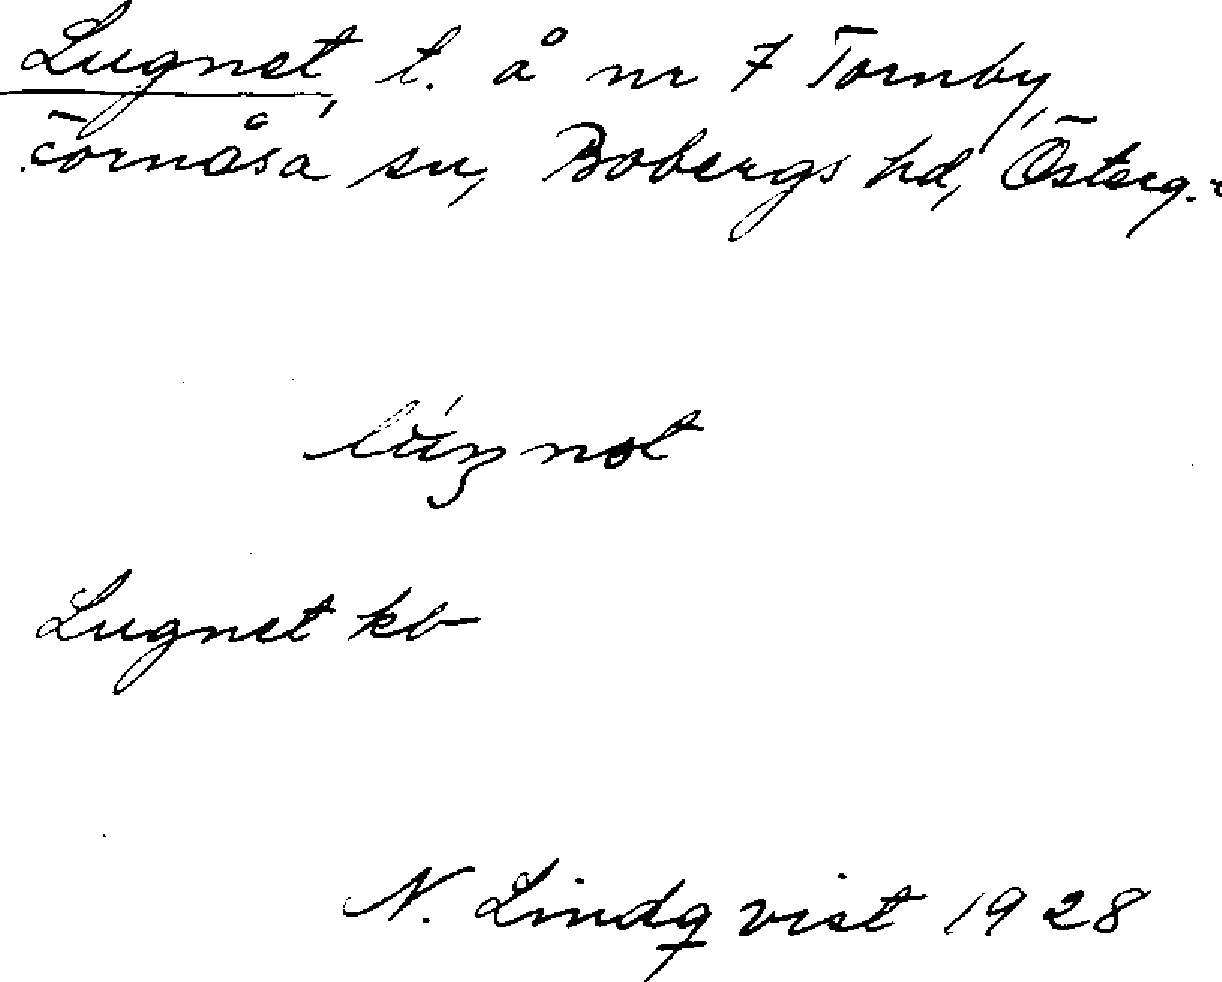 Lugnet, t. å nr 7 Tornby,
Tornåsa sn, Bobergs hd, Österg.
Lugnet kb
N. Lindqvist 1928